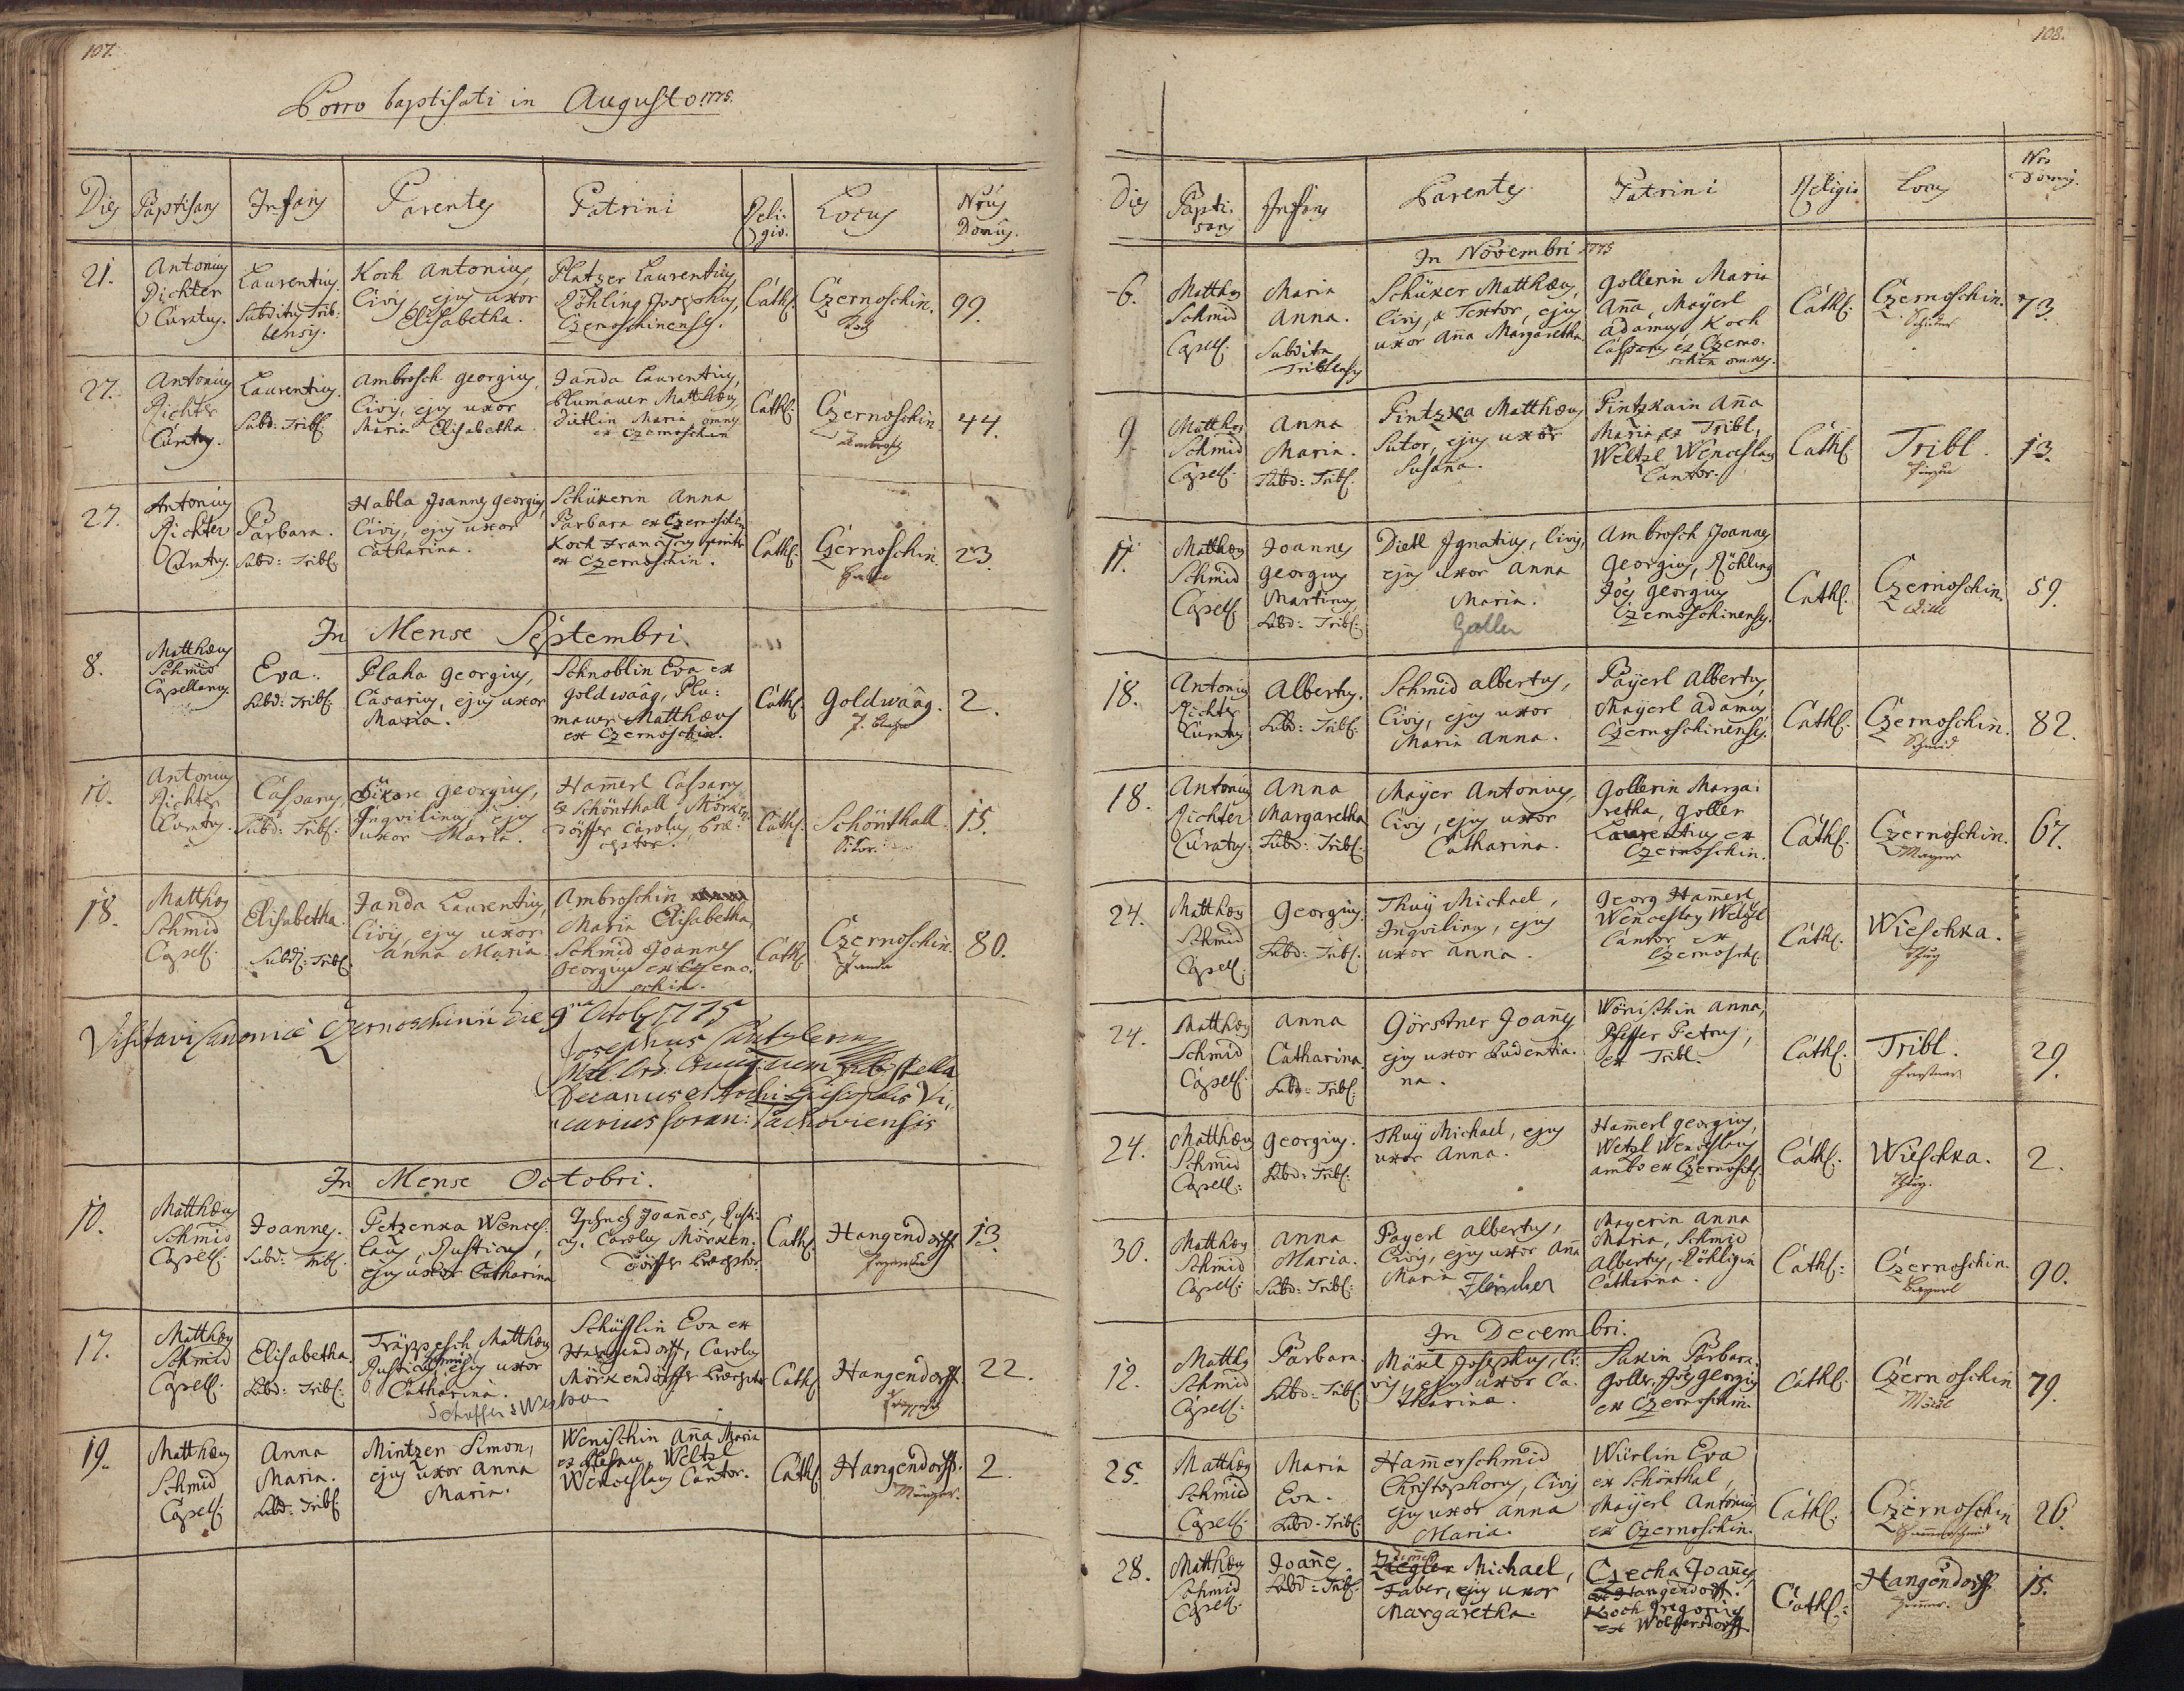 107.
Porro baptisati in Augusto 1775.
Dies Baptisans Infans Parentes Patrini Reli-
gio. Locus Nrus
Domus.
21. Antonius
Richter
Curatus. Laurentius.
Subditus Trib-
lensis. Koch Antonius,
Civis, ejus uxor
Elisabetha. Platzer Laurentius,
Röhling Josephus,
Czernoschinenses. Cath. Czernoschin.
Koch 99.
27. Antonius
Richter
Curatus. Laurentius.
Subd: Tribl. Ambrosch Georgius,
Civis, ejus uxor
Maria Elisabetha. Janda Laurentius,
Blumauer Matthæus,
Dietlin Maria omnes
ex Czernoschin Cath. Czernoschin.
Ambrosch 44.
27. Antonius
Richter
Curatus. Barbara.
Subd: Tribl. Habla Joannes Georgius,
Civis, ejus uxor
Catharina. Schükerin Anna
Barbara ex Czernoschin,
Koch Franciscus
ex Czernoschin. Cath. Czernoschin. 23.
In Mense Septembri.
8. Matthæus
Schmid
Capellanus. Eva.
Subd: Tribl. Plaha Georgius,
Casarius, ejus uxor
Maria. Schnoblin Eva ex
Goldwaag, Plu-
mauer Matthæus
ex Czernoschin. Cath. Goldwaâg. 2.
10. Antonius
Richter
Curatus. Casparus,
Subd: Tribl. Georgius,
Inquilinus, ejus
uxor Maria. Ham̄erl Casparus
ex Schönthall Mörken-
dörffer Carolus, Præ-
ceptor. Cath. Schönthall. 15.
18. Matthæus
Schmid
Capell. Elisabetha.
Subd: Tribl. Janda Laurentius,
Civis, ejus uxor
Anna Maria Ambroschin
Maria Elisabetha,
Schmid Joannes
Georgius ex Czerno-
schin. Cath. Czernoschin.
Janda 80.
Visitavi Canonice Czernoschinii die 9na Octob. 1775
Josephus
Decanus et Archi Episcopalis Vi-
carius foran:
In Mense Octobri.
10. Matthæus
Schmid
Capell. Joannes.
Subd: Tribl. Petzenka Wences-
laus, Rusticus,
ejus uxor Catharina Joan̄es, Rusti-
cus, Carolus Mörken-
dörffer Præceptor. Cath. Hangendorff. 13.
17. Matthæus
Schmid
Capell. Elisabetha.
Subd: Tribl. Träppesch Matthæus
Rusticus, ejus uxor
Catharina. Schüfflin Eva ex
Hangendorff, Carolus
Mörkendörffer Præceptor Cath. Hangendorff. 22.
19. Matthæus
Schmid
Capell. Anna
Maria.
Subd: Tribl. Mintzer Simon,
ejus uxor Anna
Maria. Wenischin An̄a Maria
Weltzl
Wenceslaus Cantor. Cath. Hangendorff. 2.
108.
Dies Bapti-
sans Infans Parentes Patrini Religio Locus Nrs
Domus.
In Novembri 1775
6. Matthæus
Schmid
Capell. Maria
Anna.
Subdita
Triblensis Schüker Matthæus,
Civis, & Textor, ejus
uxor An̄a Margaretha Gollerin Maria
An̄a, Maÿerl
Adamus, Koch
Casparus ex Czerno-
schin omnes. Cath. Czernoschin. 73.
9. Matthæus
Schmid
Capell. Anna
Maria.
Subd: Tribl. Pintzka Matthæus
Sutor, ejus uxor
Susana. Pintzkain An̄a
Maria ex Tribl,
Weltzl Wenceslaus
Cantor. Cath. Tribl. 13.
11. Matthæus
Schmid
Capell. Joannes
Georgius
Martinus
Subd: Tribl. Dietl Ignatius, Civis,
ejus uxor Anna
Maria.
Goller Ambrosch Joannes
Georgius, Röhling
Joës Georgius
Czernoschinenses. Cath. Czernoschin. 59.
18. Antonius
Richter
Curatus Albertus.
Subd: Tribl. Schmid Albertus,
Civis, ejus uxor
Maria Anna. Paÿerl Albertus,
Maÿerl Adamus
Czernoschinenses. Cath. Czernoschin.
Schmid 82.
18. Antonius
Richter
Curatus. Anna
Margaretha
Subd: Tribl. Maÿer Antonius,
Civis, ejus uxor
Catharina. Gollerin Marga-
retha, Goller
Laurentius ex
Czernoschin. Cath. Czernoschin. 67.
24. Matthæus
Schmid
Capell. Georgius.
Subd: Tribl. Thuÿ Michael,
Inquilinus, ejus
uxor Anna. Georg Ham̄erl
Wenceslaus Weltzl
Cantor ex
Czernosch. Cath. Wieschka.
24. Matthæus
Schmid
Capell. Anna
Catharina
Subd: Tribl. Görstner Joan̄es,
ejus uxor Prudentia-
na. Wönischin Anna,
Pfeffer Petrus,
ex Tribl. Cath. Tribl. 29.
24. Matthæus
Schmid
Capell. Georgius.
Subd: Tribl. Thuÿ Michael, ejus
uxor Anna. Ham̄erl Georgius,
Wetzl Wenceslaus
ambo ex Czernosch. Cath. Wieschka. 2.
30. Matthæus
Schmid
Capell. Anna
Maria.
Subd: Tribl. Payerl Albertus,
Civis, ejus uxor An̄a
Maria Fleischer Mayerin Anna
Maria, Schmid
Albertus, Röhligin
Catharina. Cath. Czernoschin.
Bayerl 90.
In Decembri.
12. Matthæus
Schmid
Capell. Barbara.
Subd: Tribl. Märl Josephus, Ci-
vis, ejus uxor Ca-
tharina. Saxin Barbara.
Goller Joës Georgius
ex Czernoschin. Cath. Czernoschin 79.
25. Matthæus
Schmid
Capell. Maria
Eva.
Subd: Tribl. Ham̄erschmid
Christophorus, Civis
ejus uxor Anna
Maria. Würlin Eva
ex Schönthal,
Maÿerl Antonius
ex Czernoschin. Cath. Czernoschin
Hammerschmid 26.
28. Matthæus
Schmid
Capell. Joan̄es.
Subd: Tribl. Michael,
Faber, ejus uxor
Margaretha. Czecha Joan̄es
ex Hangendorff.
Koch Gregorius
ex Wolffersdorff Cath. Hangendorff 15.